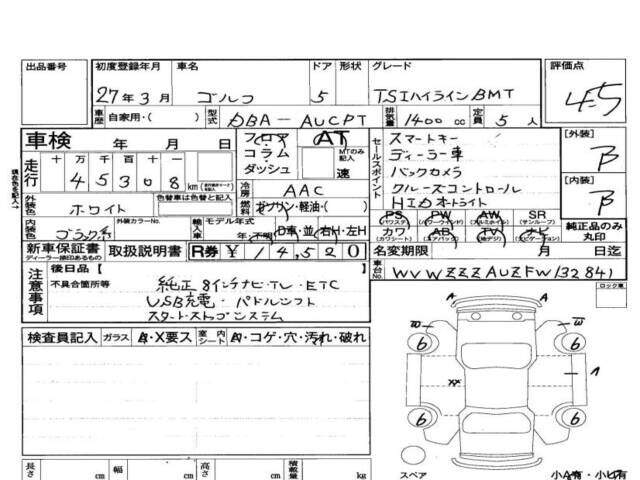 出品番号 初度登録年月 車名 ドア 形状 グレード 評価点
27年3月 ゴルフ 5 TSIハイラインBMT 4.5
車歴 自家用・( ) 型式 DBA-AUCPT 排気量 1400cc 定員 5人
車検 年 月 日 フロア AT スマートキー [外装]
走行 十万千百十 コラム MTのみ記入 セールスポイント ディーラー車 B
45308 km ダッシュ 速 バックカメラ
冷房 AAC クルーズコントロール [内装]
外装色 ホワイト 色替車は色替と記入 燃料 ガソリン・軽油・( ) HIDオートライト B
現在色を記入→
PS PW AW SR
(パワステ) (パワーウィンド) (アルミホイル) (サンルーフ)
内装色 ブラック系 外装カラーNo. 輸入車 モデル年式 年・不明 D車・並 右H・左H カワ AB TV ナビ 純正品のみ丸印
(カワシート) (エアバック) (地デジ) (ナビゲーター)
新車保証書 取扱説明書 R券 ¥14,520 名変期限 月 日迄
ディーラー捺印あるもの
注意事項 後日品( ) 車台No. WVWZZZAUZFW132841
不具合箇所等 純正8インチナビ・TV・ETC
USB充電・パドルシフト
スタートストップシステム
ロック無
検査員記入 ガラス A・X要ス 室内シート A・コゲ・穴・汚れ・破れ
A A
W W
6 6
XX A
6 6
スペア 小A有・小U有
長さ cm 幅 cm 高さ cm 積載量 kg